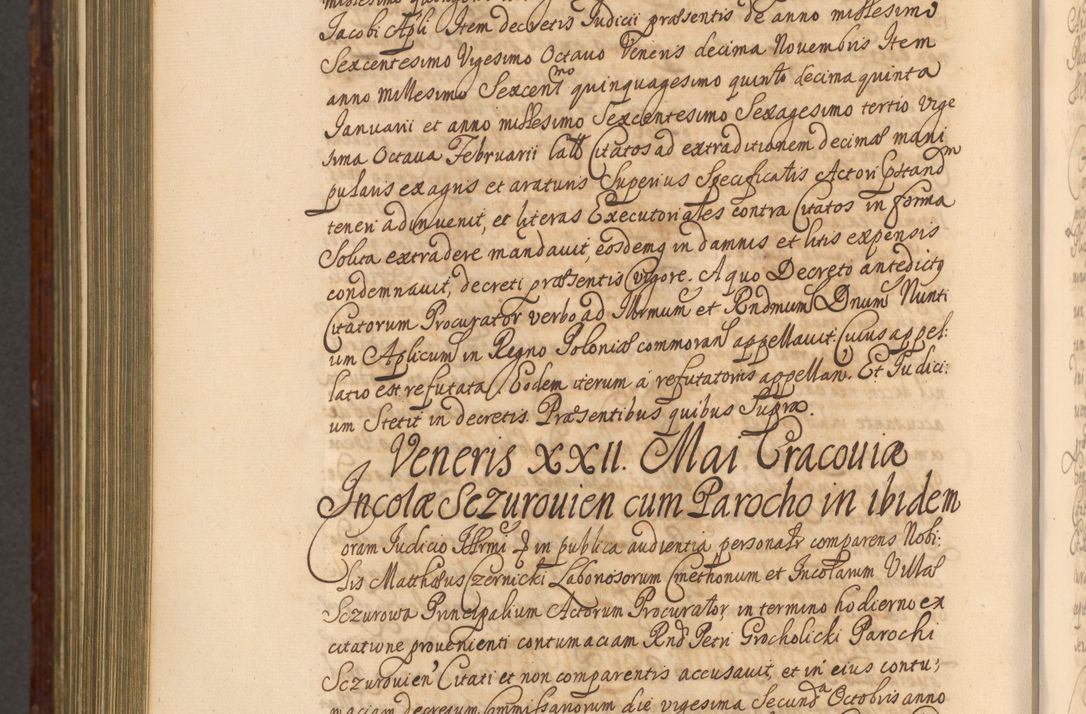 Jacobi Apli Item decretis Iudicii præsentis de anno millesimo
Sexcentesimo Vigesimo Octauo Veneris decima Novembris Item
anno Millesimo Sexcent mo quinquagesimo quinto decima quinta
Ianuarii et anno millesimo Sexcentesimo Sexagesimo tertio vige
sima Octaua Februarii latt Citatos ad extraditionem decimæ mani
pularis ex agris et araturis Superius Specificatis Actori
teneri adinuenit, et literas Executoriales contra Citatos in forma
Solita extradere mandauit, eosdemq in damnis et litis expensis
condemnauit, decreti præsentis Vigore. A quo Decreto antedictq
Citatorum Procurator verbo ad Illrmum et Rndmum Dnum Nunti
um Aplicum in Regno Poloniæ commoran appellauit. Cuius appel:
latio est refutata. Eodem iterum a refutatoris appellan. Et Iudici:
um Stetit in decretis Præsentibus quibus Supra.
Veneris XXII. Mai Cracouiæ
Incolæ Sczurouien cum Parocho in ibidem
Coram Iudicio Illrmi in publica audientia personalr comparens Nobi:
lis Matthæus Czernicki Laboriosorum Cmethonum et Incolarum Villæ
Sczurowa Principalium Actorum Procurator, in termino hodierno ex
citatione prouenienti contumaciam Rnd Petri Grocholicki Parochi
Sczurouien Citati et non comparentis accusauit, et in eius contu:
maciam decretum Commissariorum die vigesima Secunda Octobris anno